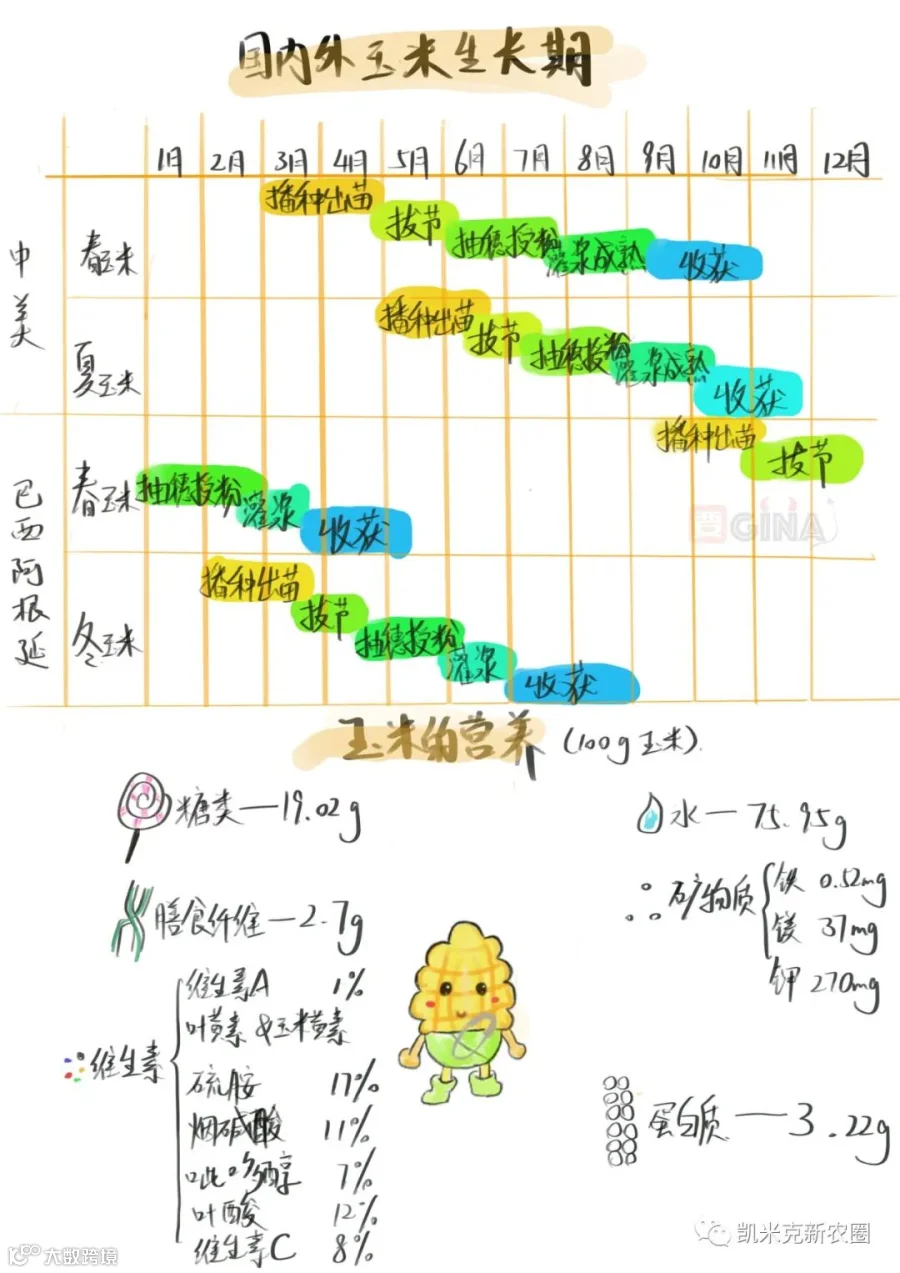 国内外玉米生长期
1月 2月 3月 4月 5月 6月 7月 8月 9月 10月 11月 12月
中美
春玉米
播种出苗
拔节
抽穗授粉
灌浆成熟
收获
夏玉米
播种出苗
拔节
抽穗授粉
灌浆成熟
收获
巴西阿根延
春玉米
播种出苗
拔节
抽穗授粉
灌浆
收获
GINA
冬玉米
播种出苗
拔节
抽穗授粉
灌浆
收获
玉米的营养 (100g玉米).
糖类—19.02g
水—75.95g
膳食纤维—2.7g
矿物质
铁 0.52mg
镁 37mg
钾 270mg
维生素
维生素A 1%
叶黄素&玉米黄素
硫胺 17%
烟碱酸 11%
吡哆醇 7%
叶酸 12%
维生素C 8%
蛋白质—3.22g
凯米克新农圈
大数跨境